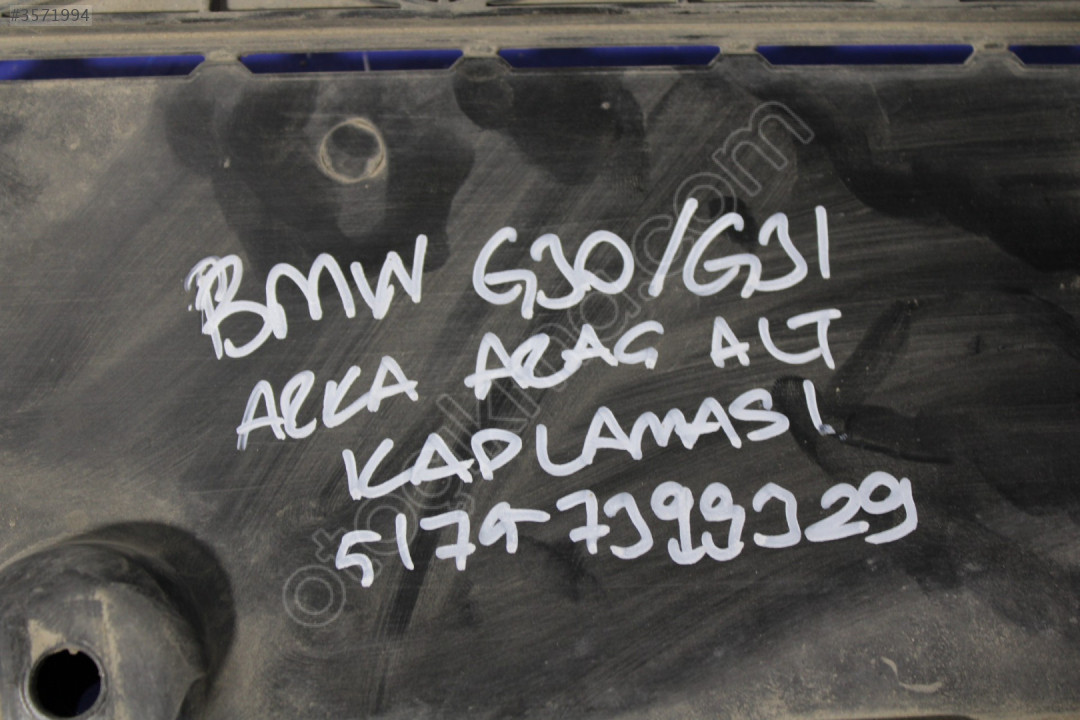 #3571994
BMW G30/G31
ARKA ARAG ALT
KAPLAMASI
5175 7399329
otocikma.com